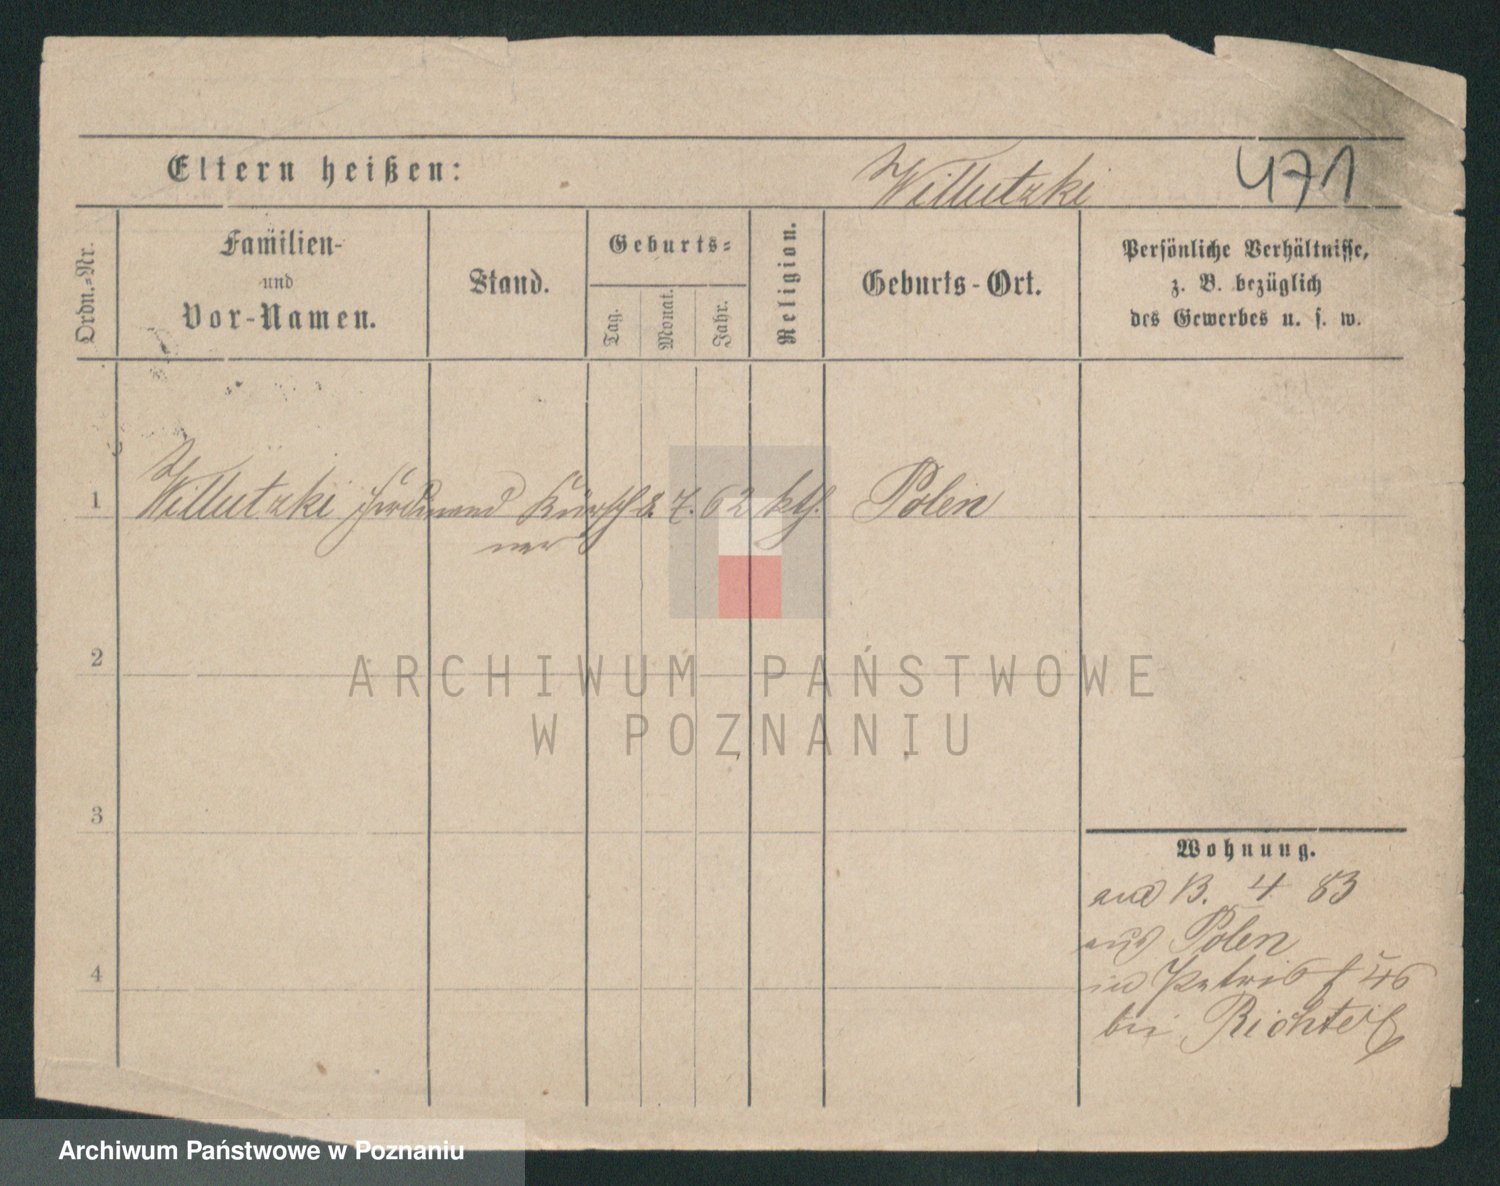 Eltern heißen:
Willutzki
471
Ordn.-Nr.
Familien-
und
Vor-Namen.
Stand.
Geburts-
Tag.
Monat.
Jahr.
Religion.
Geburts-Ort.
Persönliche Verhältnisse,
z. B. bezüglich
des Gewerbes u. s. w.
1 Willutzki Ferdinand Kürsch 8. 7. 62 kth. Polen
ner
2
3
4
Wohnung.
4 83
aus Polen
in 46
bei Richter
ARCHIWUM PAŃSTWOWE
W POZNANIU
Archiwum Państwowe w Poznaniu